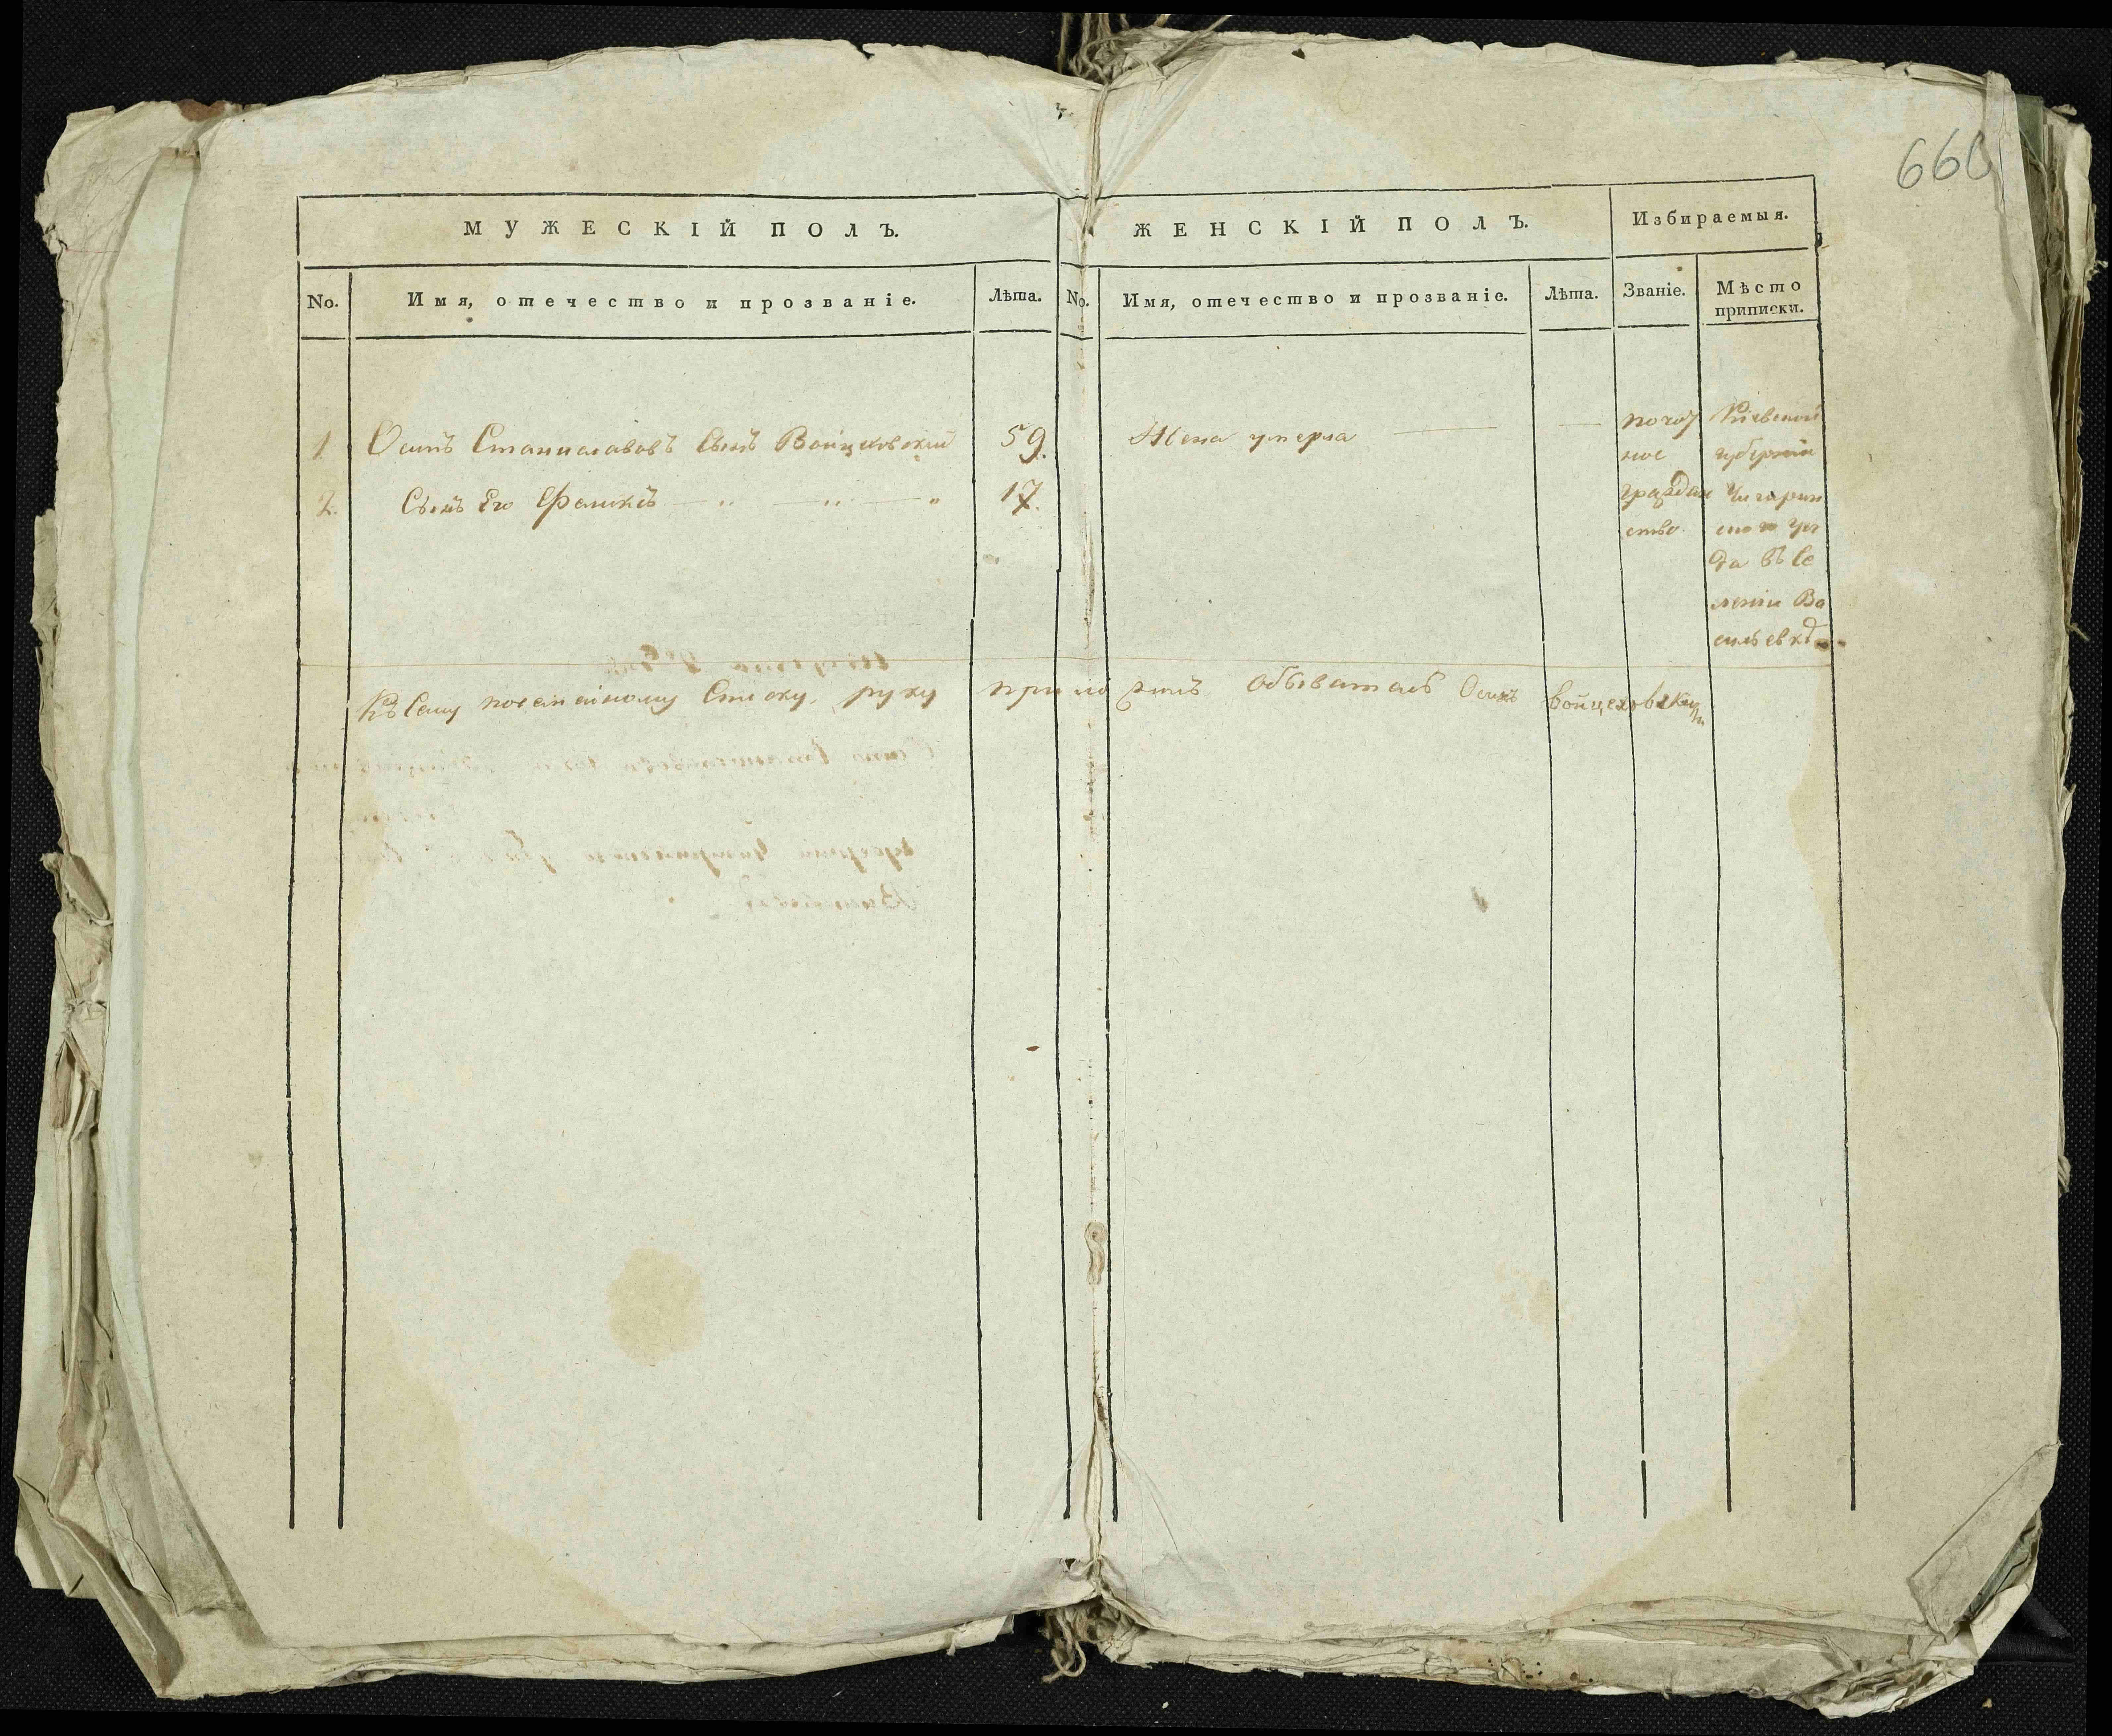 660
МУЖЕСКІЙ ПОЛЪ. ЖЕНСКІЙ ПОЛЪ. Избираемыя.
No. Имя, отечество и прозваніе. Лѣта. No. Имя, отечество и прозваніе. Лѣта. Званіе. Мѣсто приписки.
1. Осипъ Станиславовъ Сынъ Войцеховскій 59. Жена умерла
2. Сынъ Его Феликсъ — „ — „ — „ 17.
почот
ное
граждан
ство.
Кіевской
губерніи
Чигирин
ского Уез
да въ Се
леніи Ва
сильевкѣ
Къ Сему посемейному Списку, руку приложилъ Обыватель Осипъ войцеховскій